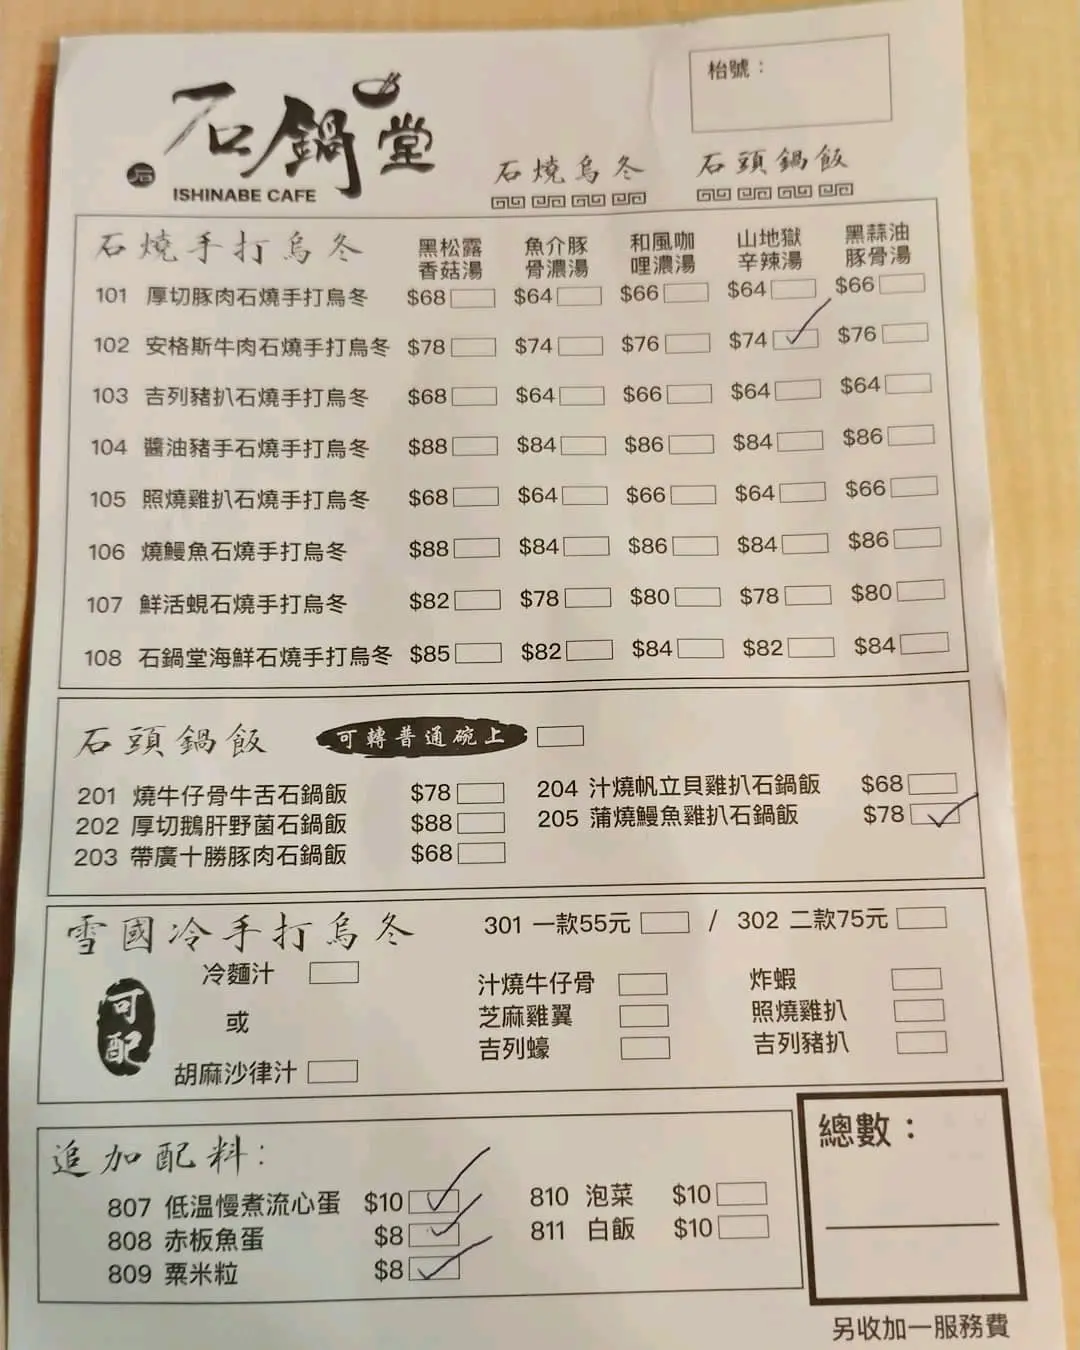 枱號：
石鍋堂
石
ISHINABE CAFE
石燒烏冬
石頭鍋飯
石燒手打烏冬 黑松露香菇湯 魚介豚骨濃湯 和風咖哩濃湯 山地獄辛辣湯 黑蒜油豚骨湯
101 厚切豚肉石燒手打烏冬 $68 $64 $66 $64 $66
102 安格斯牛肉石燒手打烏冬 $78 $74 $76 $74 $76
103 吉列豬扒石燒手打烏冬 $68 $64 $66 $64 $64
104 醬油豬手石燒手打烏冬 $88 $84 $86 $84 $86
105 照燒雞扒石燒手打烏冬 $68 $64 $66 $64 $66
106 燒鰻魚石燒手打烏冬 $88 $84 $86 $84 $86
107 鮮活蜆石燒手打烏冬 $82 $78 $80 $78 $80
108 石鍋堂海鮮石燒手打烏冬 $85 $82 $84 $82 $84
石頭鍋飯 可轉普通碗上
201 燒牛仔骨牛舌石鍋飯 $78
202 厚切鵝肝野菌石鍋飯 $88
203 帶廣十勝豚肉石鍋飯 $68
204 汁燒帆立貝雞扒石鍋飯 $68
205 蒲燒鰻魚雞扒石鍋飯 $78
雪國冷手打烏冬 301 一款55元 / 302 二款75元
可配
冷麵汁
或
胡麻沙律汁
汁燒牛仔骨 炸蝦
芝麻雞翼 照燒雞扒
吉列蠔 吉列豬扒
追加配料：
807 低温慢煮流心蛋 $10
808 赤板魚蛋 $8
809 粟米粒 $8
810 泡菜 $10
811 白飯 $10
總數：
另收加一服務費